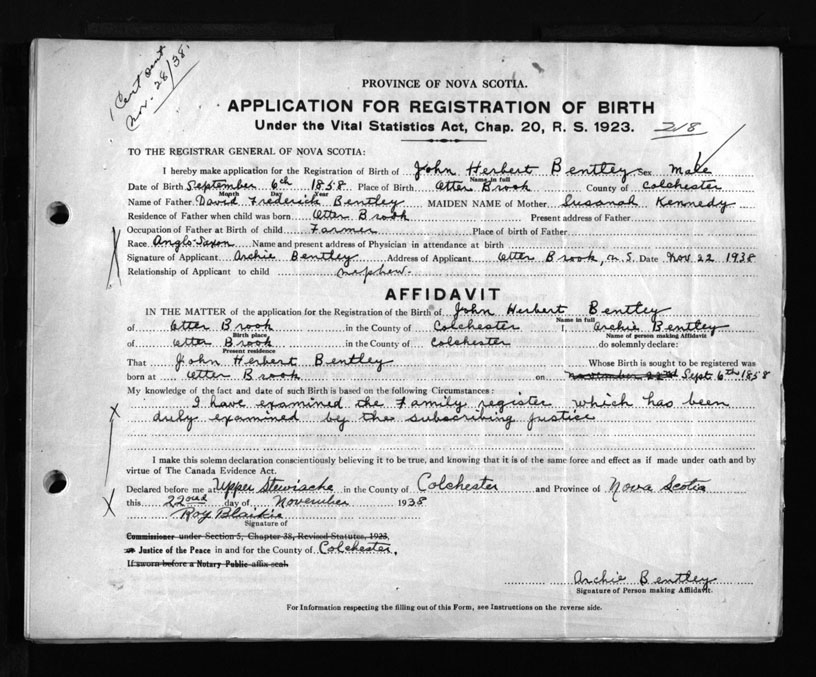 1 Cert sent
Nov. 28/38.
PROVINCE OF NOVA SCOTIA.
APPLICATION FOR REGISTRATION OF BIRTH
Under the Vital Statistics Act, Chap. 20, R. S. 1923.
218
TO THE REGISTRAR GENERAL OF NOVA SCOTIA:
I hereby make application for the Registration of Birth of John Herbert Bentley Sex Male
Name in full
Date of Birth September 6th 1858 Place of Birth Otter Brook County of Colchester
Month Day Year
Name of Father David Frederick Bentley MAIDEN NAME of Mother Susanah Kennedy
Residence of Father when child was born Otter Brook Present address of Father
Occupation of Father at Birth of child Farmer Place of birth of Father
Race Anglo-Saxon Name and present address of Physician in attendance at birth
Signature of Applicant Archie Bentley Address of Applicant Otter Brook, N.S. Date Nov 22 1938
Relationship of Applicant to child nephew.
AFFIDAVIT
IN THE MATTER of the application for the Registration of the Birth of John Herbert Bentley
Name in full
of Otter Brook in the County of Colchester I, Archie Bentley
Birth place Name of person making Affidavit
of Otter Brook in the County of Colchester do solemnly declare:
Present residence
That John Herbert Bentley Whose Birth is sought to be registered was
born at Otter Brook on November 22nd Sept. 6th 1858
My knowledge of the fact and date of such Birth is based on the following Circumstances:
I have examined the Family register which has been
duly examined by the subscribing justice
I make this solemn declaration conscientiously believing it to be true, and knowing that it is of the same force and effect as if made under oath and by
virtue of The Canada Evidence Act.
Declared before me at Upper Stewiacke in the County of Colchester and Province of Nova Scotia
this 22nd day of November 1938
Roy Blaikie
Signature of
Commissioner under Section 5, Chapter 38, Revised Statutes, 1923,
or Justice of the Peace in and for the County of Colchester,
If sworn before a Notary Public affix seal.
Archie Bentley
Signature of Person making Affidavit.
For Information respecting the filling out of this Form, see Instructions on the reverse side.